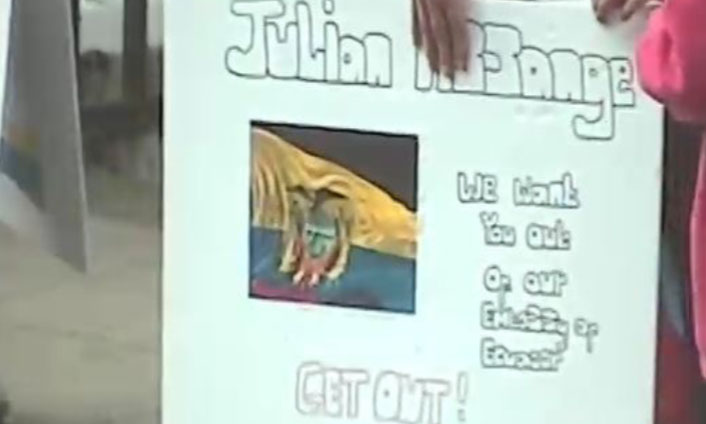 Julian Assange
WE Want
You out
of our
Embassy of
Ecuador
GET OUT!